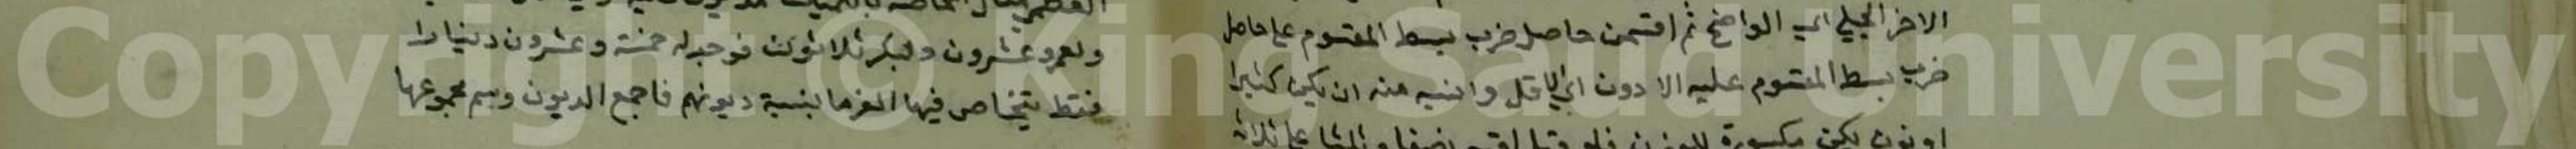 الاخر الجلي اي الواضح ثم اقسمن حاصل ضرب بسط المقسوم على حاصل
ضرب بسط المقسوم عليه الادون اي الاقل وانسبه منه ان يكن كثيرا
ولعمرو عشرون ولبكر ثلاثون فوجد له خمسة وعشرون دينارا
فقط يتحاص فيها الغرما بنسبة ديونهم فاجمع الديون وسم مجموعها
Copyright © King Saud University